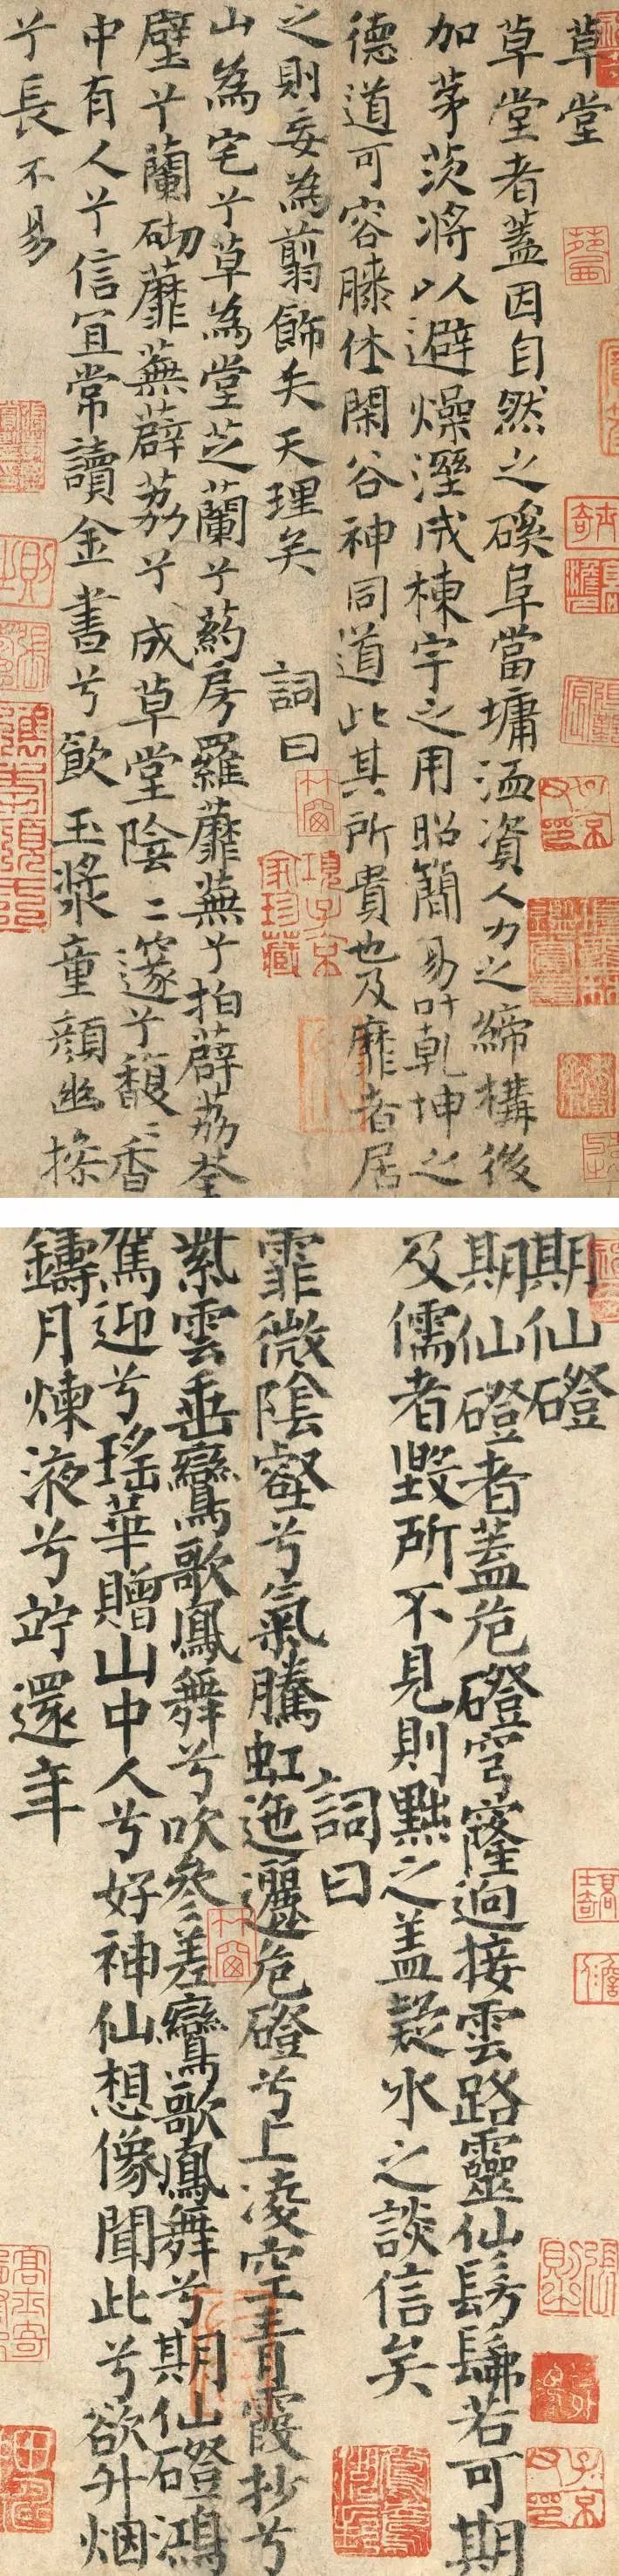 草堂
草堂者蓋因自然之磎阜當墉洫資人力之締構後
加茅茨將以避燥溼成棟宇之用昭簡易叶乾坤之
德道可容膝休閑谷神同道此其所貴也及靡者居
之則妄為翦飾失天理矣 詞曰
山為宅兮草為堂芝蘭兮葯房羅蘼蕪兮拍薜荔荃
壁兮蘭砌蘼蕪薜荔兮成草堂陰二邃兮馥二香
中有人兮信宜常讀金書兮飲玉漿童顏幽操
兮長不易
期仙磴
期仙磴者蓋危磴穹窿迥接雲路靈仙髣髴若可期
及儒者毀所不見則黜之蓋疑冰之談信矣
詞曰
霏微陰壑兮氣騰虹迤邐危磴兮上凌空青霞杪兮
紫雲垂鸞歌鳳舞兮吹參差鸞歌鳳舞兮期仙磴鴻
駕迎兮瑤華贈山中人兮好神仙想像聞此兮欲升烟
鑄月煉液兮竚還年